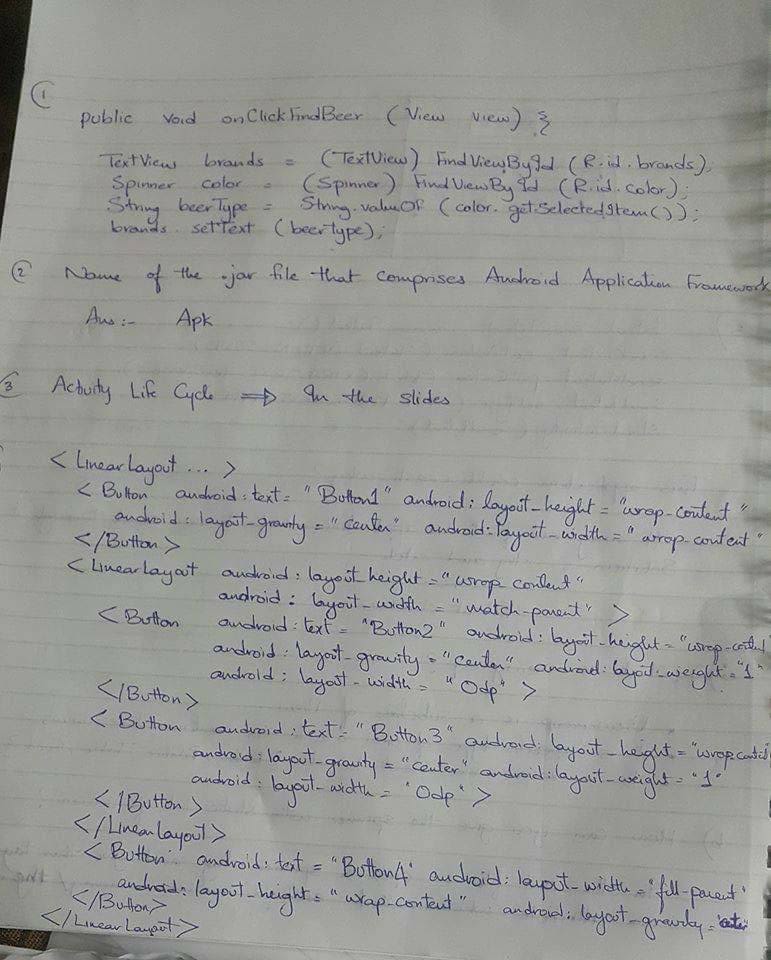 ①
public void onClickFindBeer (View view) {
TextView brands = (TextView) FindViewById (R.id.brands);
Spinner color = (Spinner) FindViewById (R.id.color);
String beerType = String.valueOf (color.getSelectedItem());
brands.setText (beerType);
② Name of the .jar file that comprises Android Application Framework
Ans:- Apk
③ Activity Life Cycle ⇒ In the slides
<LinearLayout ... >
<Button android:text= "Button1" android:layout_height= "wrap-content"
android:layout_gravity= "center" android:layout_width= "wrap-content"
</Button>
<LinearLayout android:layout_height= "wrap content"
android:layout_width = "match-parent" >
<Button android:text = "Button2" android:layout_height= "wrap-content
android:layout_gravity= "center" android:layout_weight= "1"
android:layout-width = "0dp" >
</Button>
<Button android:text= "Button3" android:layout_height= "wrap content
android:layout_gravity= "center" android:layout_weight= "1"
android:layout_width = "0dp" >
</Button>
</LinearLayout>
<Button android:text = "Button4" android:layout_width= "fill-parent"
android:layout_height= "wrap-content" android:layout_gravity=
</Button>
</LinearLayout>